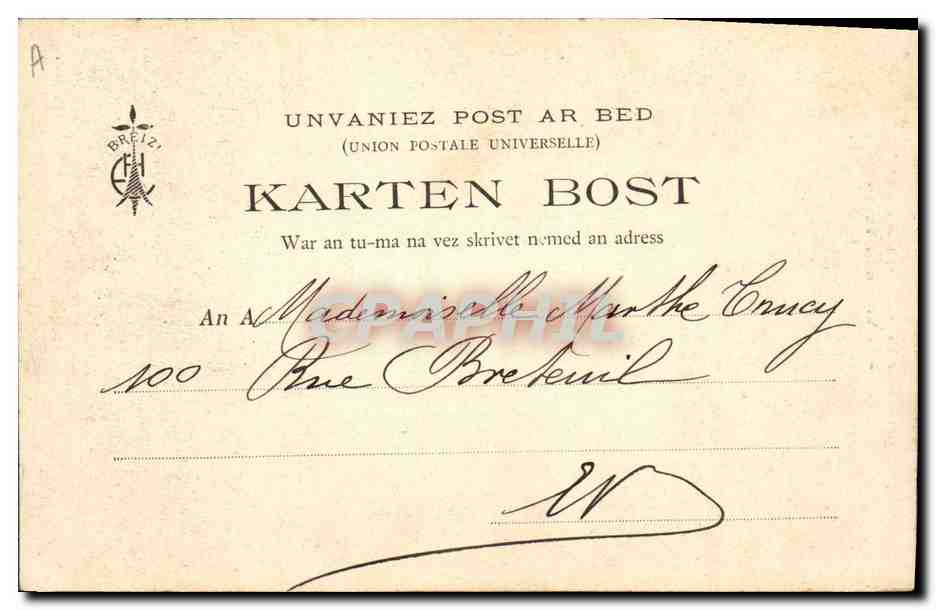 A
UNVANIEZ POST AR BED
(UNION POSTALE UNIVERSELLE)
BREIZ'
KARTEN BOST
War an tu-ma na vez skrivet nemed an adress
An A Mademoiselle Marthe
CPAPHIL
100 Rue Breteuil
EV